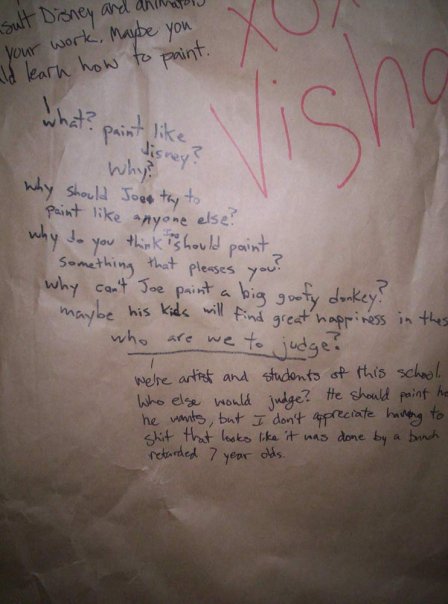 sult Disney and animators
your work. Maybe you
ld learn how to paint.
XOX
Visho
What? paint like
disney?
Why?
Why should Joe try to
paint like anyone else?
why do you think Joe should paint
something that pleases you?
why can't Joe paint a big goofy donkey?
maybe his kids will find great happiness in thes
who are we to judge?
We're artist and students of this school.
Who else would judge? He should paint ho
he wants, but I don't appreciate having to
shit that looks like it was done by a bunch
retarded 7 year olds.